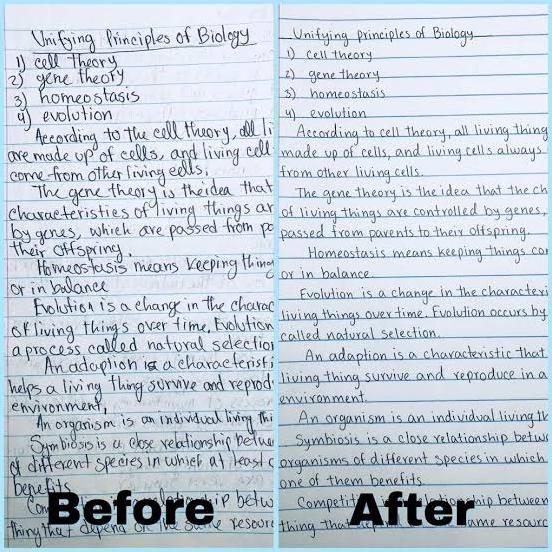 Unifying Principles of Biology
1) cell theory
2) gene theory
3) homeostasis
4) evolution
According to the cell theory, all li
are made up of cells, and living cell
come from other living cells.
The gene theory is the idea that
characteristics of living things ar
by genes, which are passed from pa
their offspring.
Homeostasis means keeping thing
or in balance
Evolution is a change in the charac
of living things over time, Evolution
a process called natural selection
An adaption is a characteristi
helps a living thing survive and reprod
environment.
An organism is an individual living thi
Symbiosis is a close relationship betwe
of different species in which at least o
benefits
Com ip betw
thing that depend on the same resourc
Before
Unifying Principles of Biology
1) cell theory
2) gene theory
3) homeostasis
4) evolution
According to cell theory, all living thing
made up of cells, and living cells always
from other living cells.
The gene theory is the idea that the ch
of living things are controlled by genes,
passed from parents to their offspring.
Homeostasis means keeping things con
or in balance.
Evolution is a change in the characteri
living things over time. Evolution occurs by
called natural selection.
An adaption is a characteristic that
living thing survive and reproduce in a
environment.
An organism is an individual living th
Symbiosis is a close relationship betw
organisms of different species in which
one of them benefits.
Competit ship between
thing that ame resourc
After